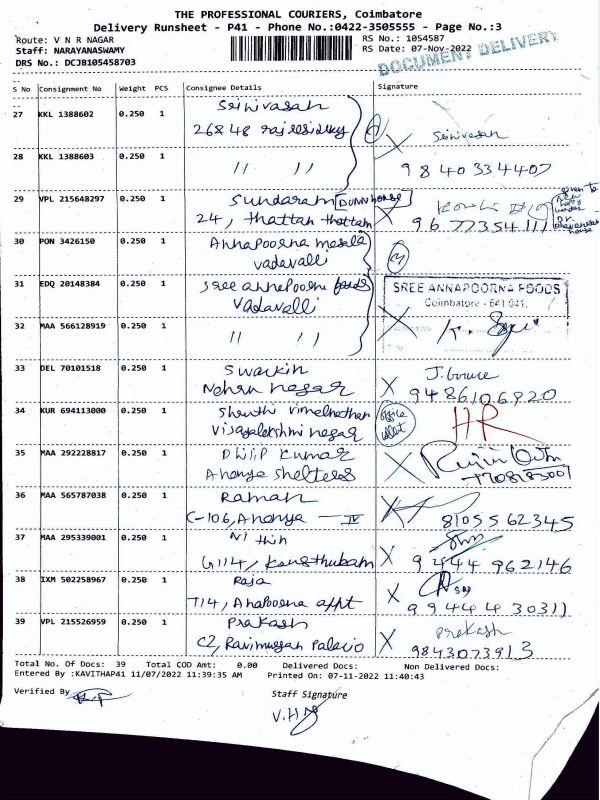 THE PROFESSIONAL COURIERS, Coimbatore
Delivery Runsheet - P41 - Phone No.:0422-3505555 - Page No.:3
Route: V N R NAGAR RS No.: 1054587
Staff: NARAYANASWAMY RS Date: 07-Nov-2022
DRS No.: DCJB105458703
DOCUMENT DELIVERY
S No Consignment No Weight PCS Consignee Details Signature
27 KKL 1388602 0.250 1 Srinivasan
26848 rajresidency Srinivasan
28 KKL 1388603 0.250 1 // // 9840334407
29 VPL 215648297 0.250 1 Sundaram
24, Thattan thottam 9677354111
30 PON 3426150 0.250 1 Annapoorna masala
vadavalli
31 EDQ 20148384 0.250 1 Sree annapoorna foods
vadavalli
SREE ANNAPOORNA FOODS
Coimbatore - 641 041.
32 MAA 566128919 0.250 1 // //
33 DEL 70101518 0.250 1 Swarkin
Nehru nagar 9486106920
34 KUR 694113000 0.250 1 Shruthi Vimalnathan
Vijayalakshmi nagar HR
35 MAA 292228817 0.250 1 Dilip Kumar
Ananya shelters 7708183001
36 MAA 565787038 0.250 1 Raman
C-106, Ananya - IV 8105562345
37 MAA 295339001 0.250 1 Nithin
G114, Kousthubam 9444962146
38 IXM 502258967 0.250 1 Raja
T14, Anapoorna appt 9944430311
39 VPL 215526959 0.250 1 Prakash
C2, Ravimurugan Palacio Prakash
9843073913
Total No. Of Docs: 39 Total COD Amt: 0.00 Delivered Docs: Non Delivered Docs:
Entered By :KAVITHAP41 11/07/2022 11:39:35 AM Printed On: 07-11-2022 11:40:43
Verified By Staff Signature